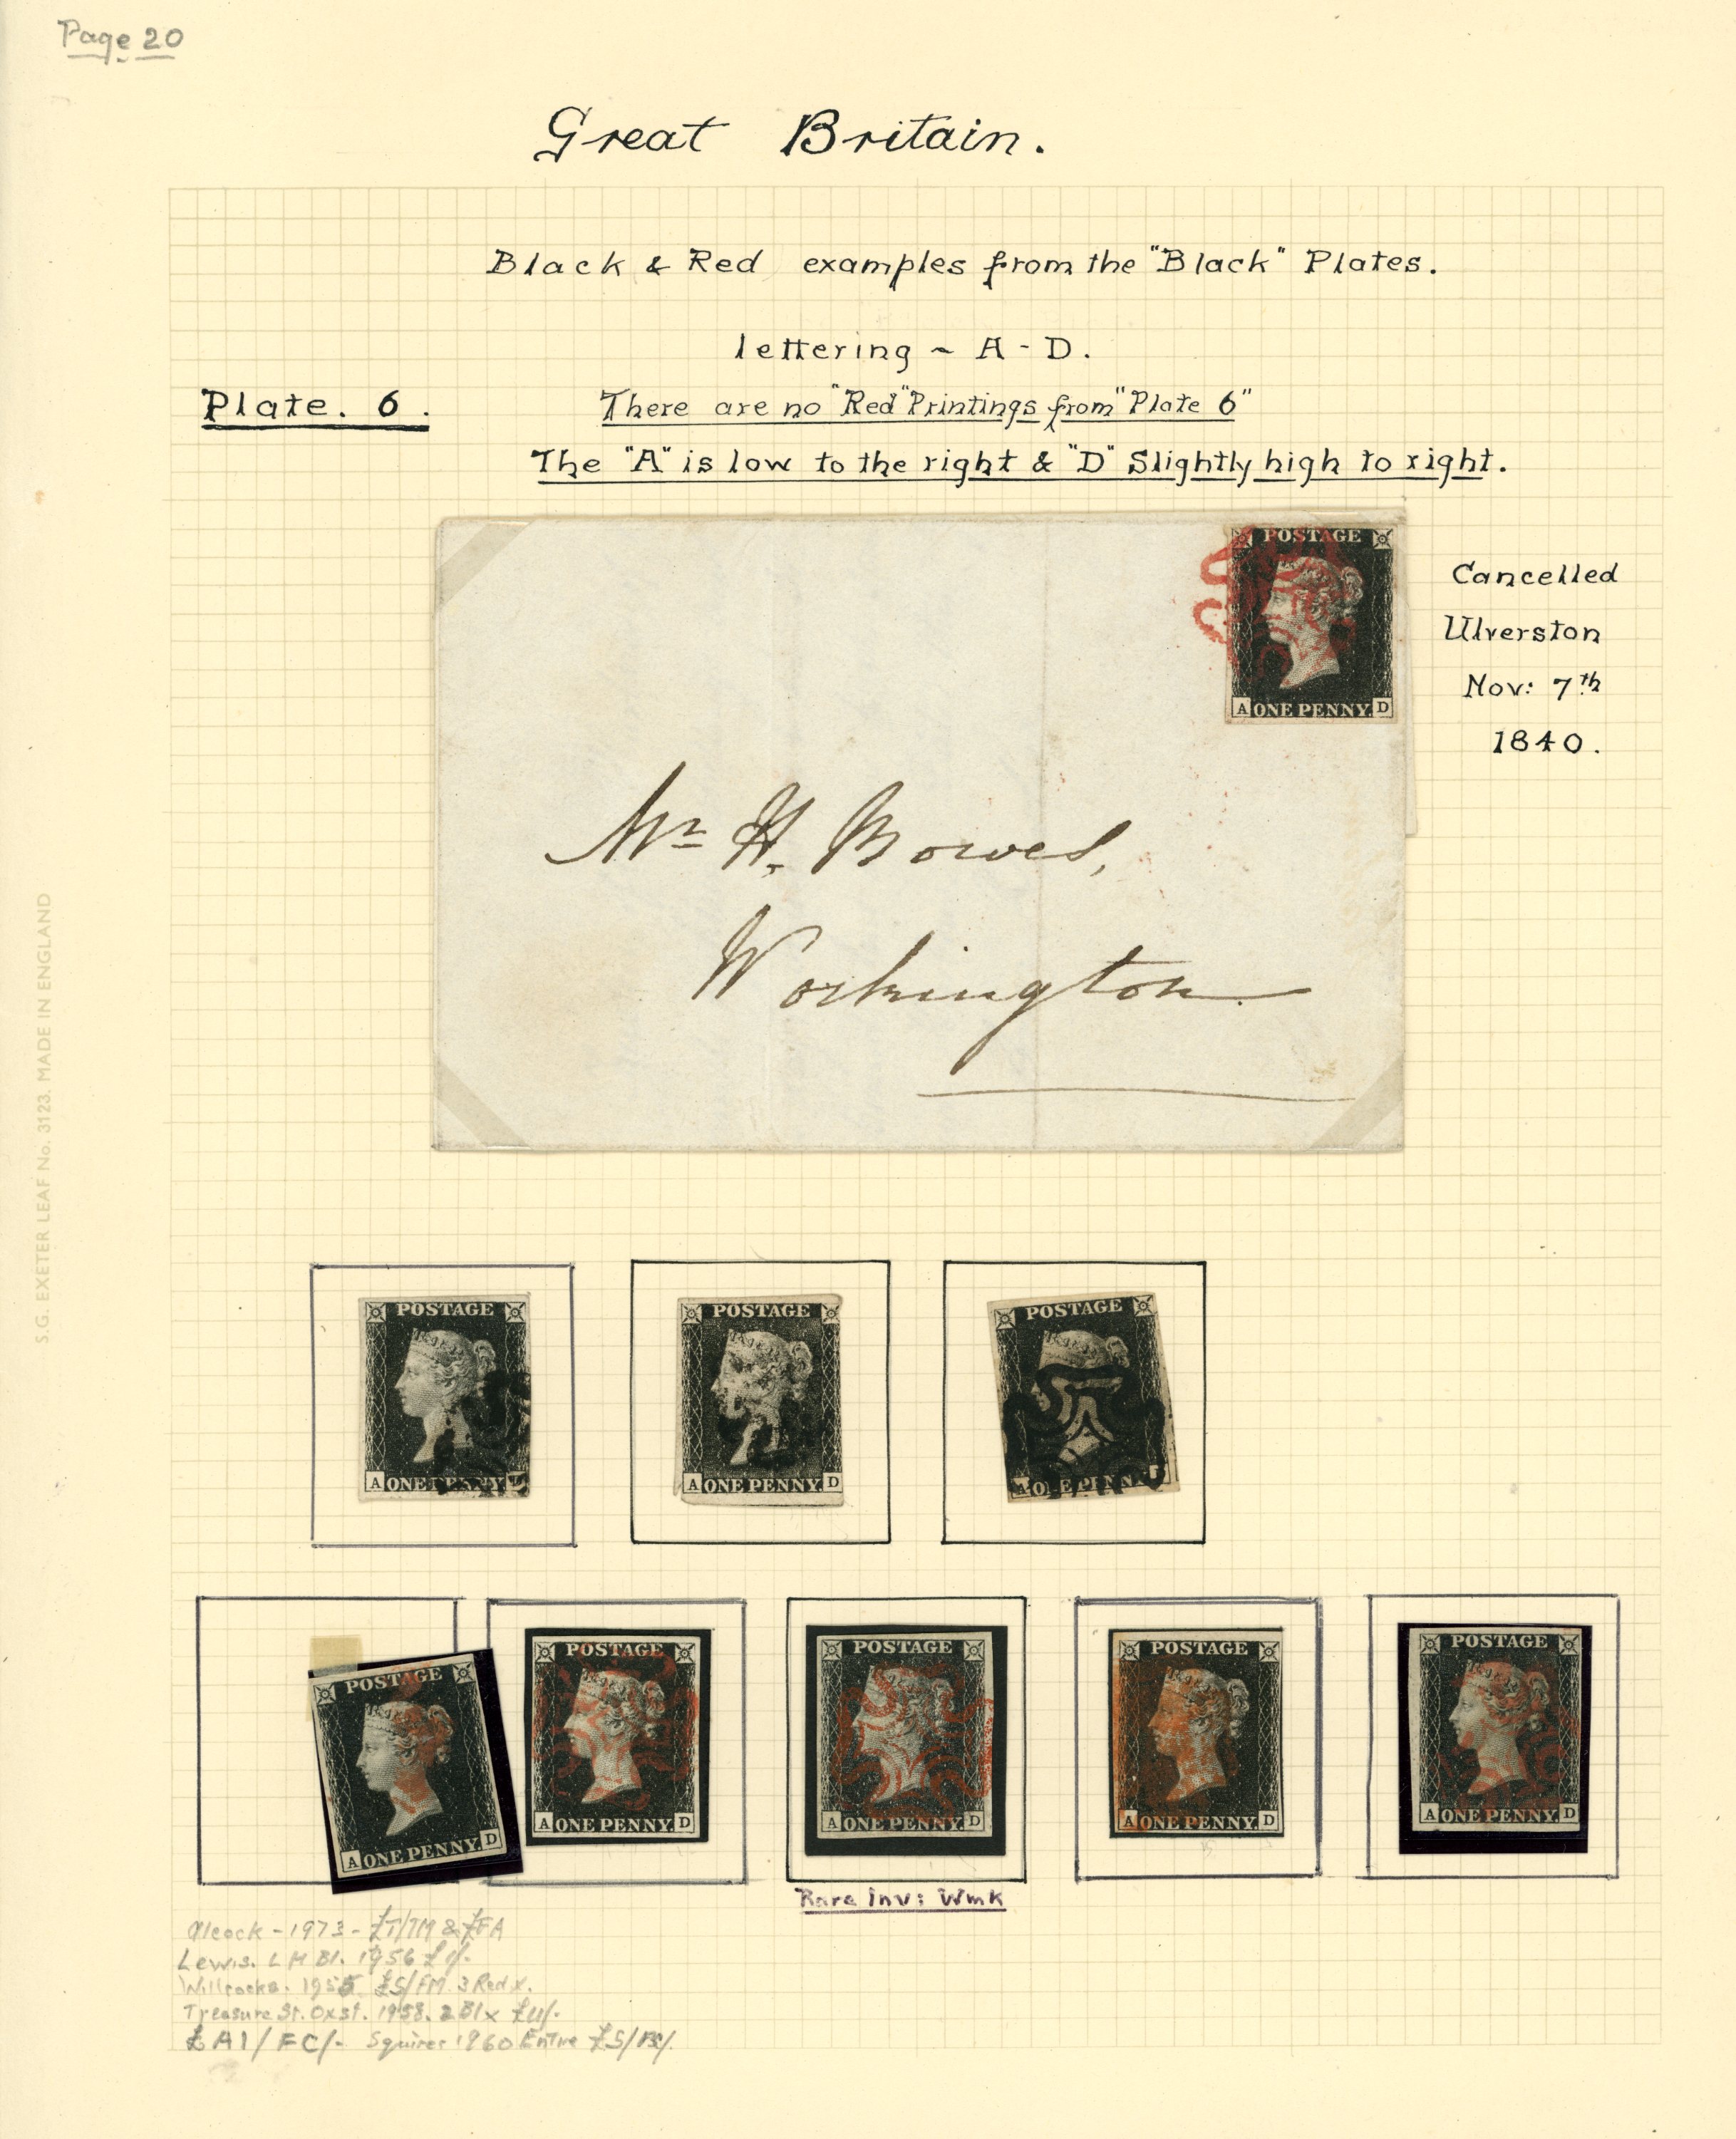 Page 20
Great Britain.
Black & Red examples from the "Black" Plates.
lettering ~ A - D.
Plate. 6.
There are no "Red" Printings from "Plate 6"
The "A" is low to the right & "D" Slightly high to right.
POSTAGE
A ONE PENNY. D
Cancelled
Ulverston
Nov: 7th
1840.
Mr H. Bowes,
Workington
S.G. EXETER LEAF No. 3123. MADE IN ENGLAND
POSTAGE
A ONE PENNY D
POSTAGE
A ONE PENNY. D
POSTAGE
A ONE PENNY
POSTAGE
A ONE PENNY. D
POSTAGE
A ONE PENNY. D
POSTAGE
A ONE PENNY. D
POSTAGE
A ONE PENNY. D
POSTAGE
A ONE PENNY. D
Rare Inv: Wmk
Alcock - 1973 - £T/TM & £FA
Lewis. L M Bl. 1956
Willcocks. 1955 £S/FM. 3 Red x.
Treasure St. Oxst. 1958. 2 Bl x
£ A1/FC/- Squires 1960 Entire